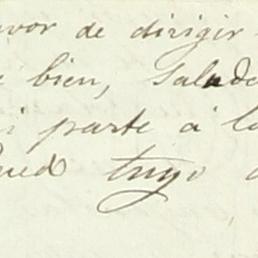 avor de dirigir
e bien, Salude
i parte á la
ued tuyo a